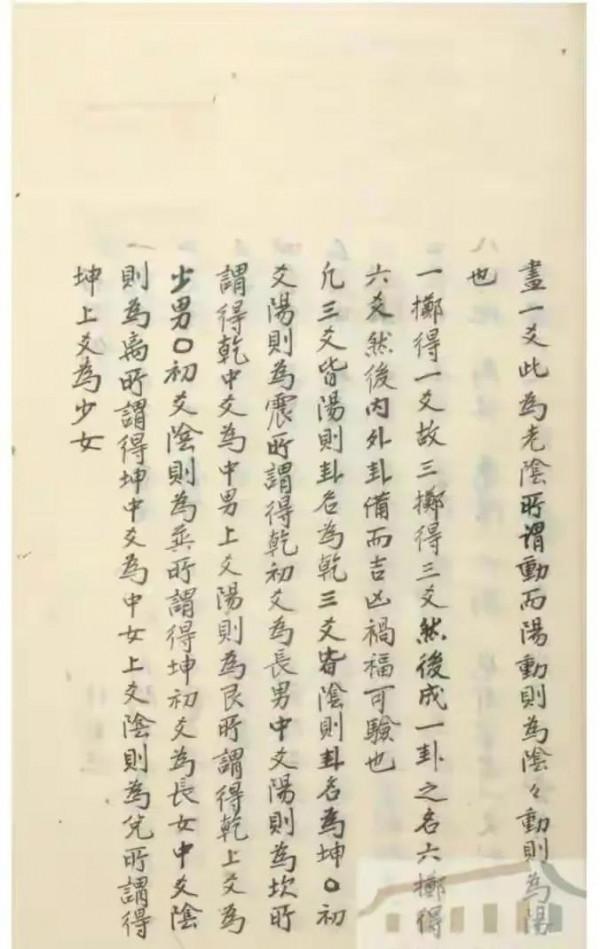 畫一爻此為老陰所谓動而陽動則為陰々動則為陽
也
一擲得一爻故三擲得三爻然後成一卦之名六擲得
六爻然後內外卦備而吉凶禍福可驗也
凡三爻皆陽則卦名為乾三爻皆陰則卦名為坤○初
爻陽則為震所謂得乾初爻為長男中爻陽則為坎所
謂得乾中爻為中男上爻陽則為艮所謂得乾上爻為
少男○初爻陰則為巽所謂得坤初爻為長女中爻陰
則為离所謂得坤中爻為中女上爻陰則為兌所謂得
坤上爻為少女